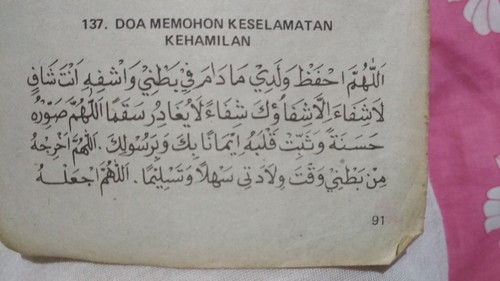 137. DOA MEMOHON KESELAMATAN
KEHAMILAN
اَللّٰهُمَّ احْفَظْ وَلَدِيْ مَا دَامَ فِيْ بَطْنِيْ وَاشْفِهِ اَنْتَ شَافٍ
لَا شَفَاءَ اِلَّا شِفَاؤُكَ شِفَاءً لَا يُغَادِرُ سَقَمًا اَللّٰهُمَّ صَوِّرْهُ
حَسَنَةً وَثَبِّتْ قَلْبَهُ اِيْمَانًا بِكَ وَبِرَسُوْلِكَ. اَللّٰهُمَّ اَخْرِجْهُ
مِنْ بَطْنِيْ وَقْتَ وِلَادَتِى سَهْلًا وَتَسْلِيْمًا. اَللّٰهُمَّ اجْعَلْهُ
91